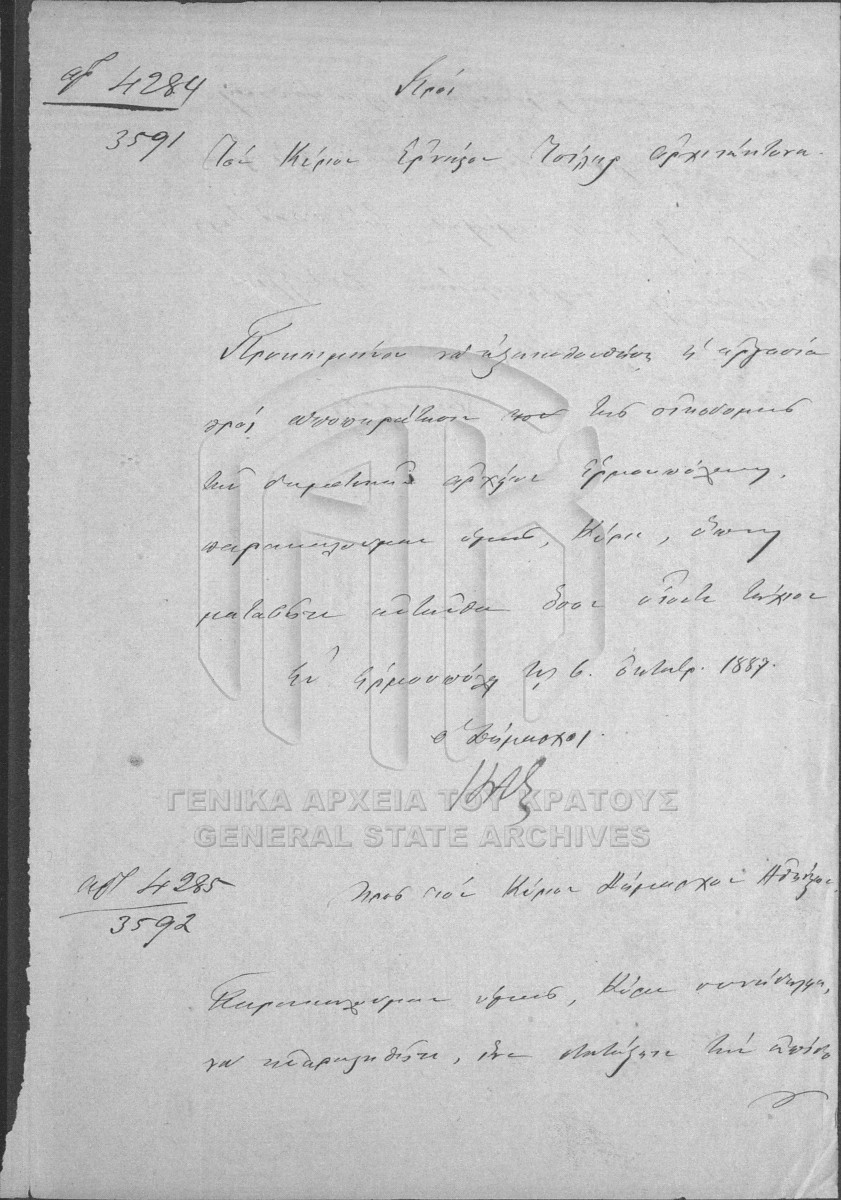 αρθ 4284
3591
Προς
Τον Κύριον Ερνέστον Τσίλλερ αρχιτέκτονα.
Προκειμένου να εξακολουθήση η εργασία
προς αποπεράτωσιν της οικοδομής
του δημοτικού Ερμουπόλεως,
παρακαλούμεν υμάς, Κύριε, όπως
μεταβήτε ενταύθα όσον τάχιον
Εν Ερμουπόλει τη 6. Οκτωβρ. 1887.
ο Δήμαρχος.
ΓΕΝΙΚΑ ΑΡΧΕΙΑ ΤΟΥ ΚΡΑΤΟΥΣ
GENERAL STATE ARCHIVES
αρθ 4285
3592
Προς τον Κύριον Δήμαρχον Αθηνών.
Παρακαλούμεν υμάς, Κύριε συνάδελφε,
να ευαρεστηθήτε, ίνα διατάξητε την